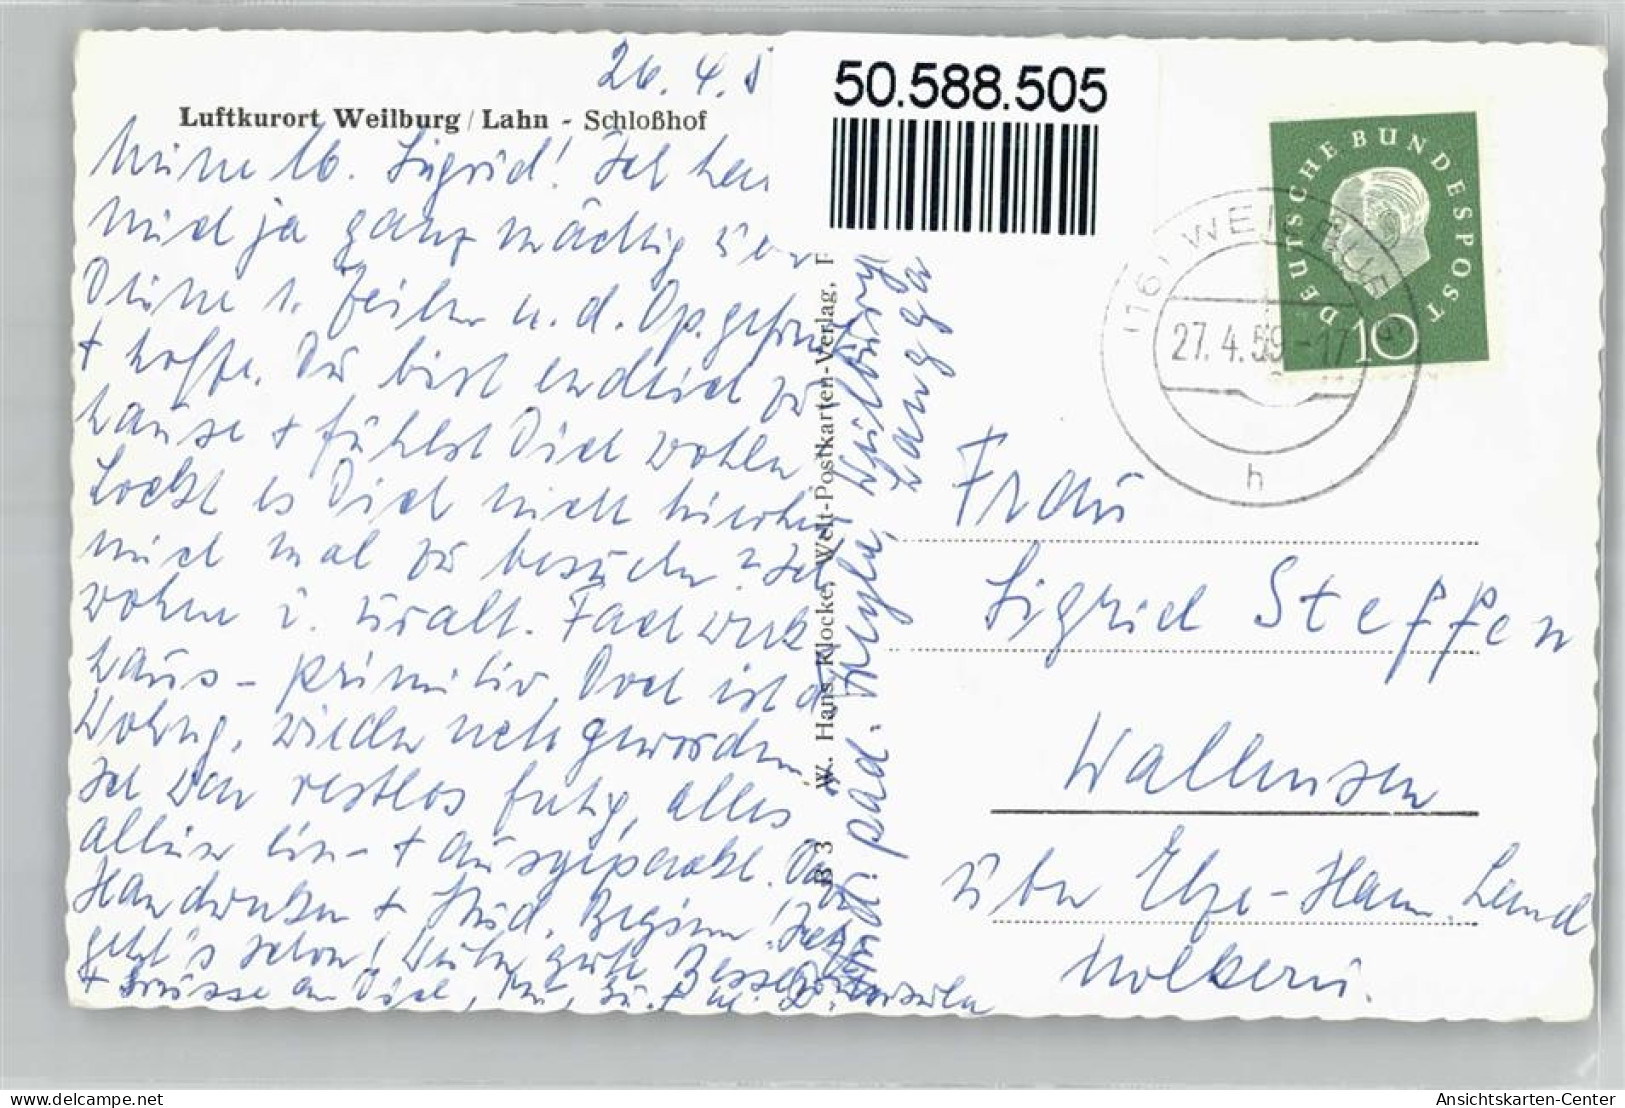 26.4.5
Luftkurort Weilburg / Lahn - Schloßhof
Meine lb. Sigrid! Ich hab
mich ja ganz mächtig über
Deine l. Zeilen u. d. Op. gefreut
+ hoffe, Du bist endlich zu
Hause + fühlst Dich wohler
Lockt es Dich nicht hierher
mich mal zu besuchen? Ich
wohne i. uralt. Fachwerk
haus - primitiv, doch ist d.
Wohng. wieder nett geworden.
Ich war restlos fertig, alles
allein ein- + ausgepackt. Dann
Handwerker + Stud. Beginn! Jetzt
geht's schon! Weiter gute Besserung
+ Grüsse an Dich,
Ursula
päd.
Weilburg
Langga
B 3 W. Hans Klocke, Welt-Postkarten-Verlag, F
50.588.505
DEUTSCHE BUNDESPOST
10
(16) WEILBURG
27.4.59-17
h
Frau
Sigrid Steffen
Wallensen
über Elze-Hann. Land
Molkerei.
hansmichael24
Ansichtskarten-Center